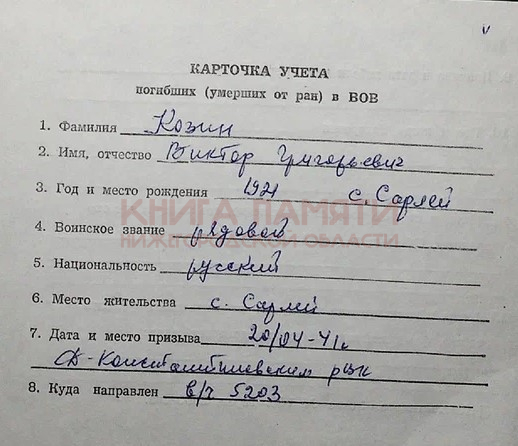 КАРТОЧКА УЧЕТА
погибших (умерших от ран) в ВОВ
1. Фамилия Козин
2. Имя, отчество Виктор Григорьевич
3. Год и место рождения 1921 с. Сарлей
КНИГА ПАМЯТИ
4. Воинское звание рядовой
НИЖЕГОРОДСКОЙ ОБЛАСТИ
5. Национальность русский
6. Место жительства с. Сарлей
7. Дата и место призыва 20/04-41г
Д-Константиновским рвк
8. Куда направлен в/ч 5203